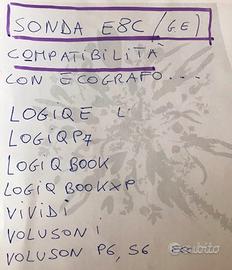 SONDA E8C (GE)
COMPATIBILITÀ
CON ECOGRAFO....
LOGIQ E
LOGIQ P7
LOGIQ BOOK
LOGIQ BOOK XP
VIVID i
VOLUSON i
VOLUSON P6, S6
subito